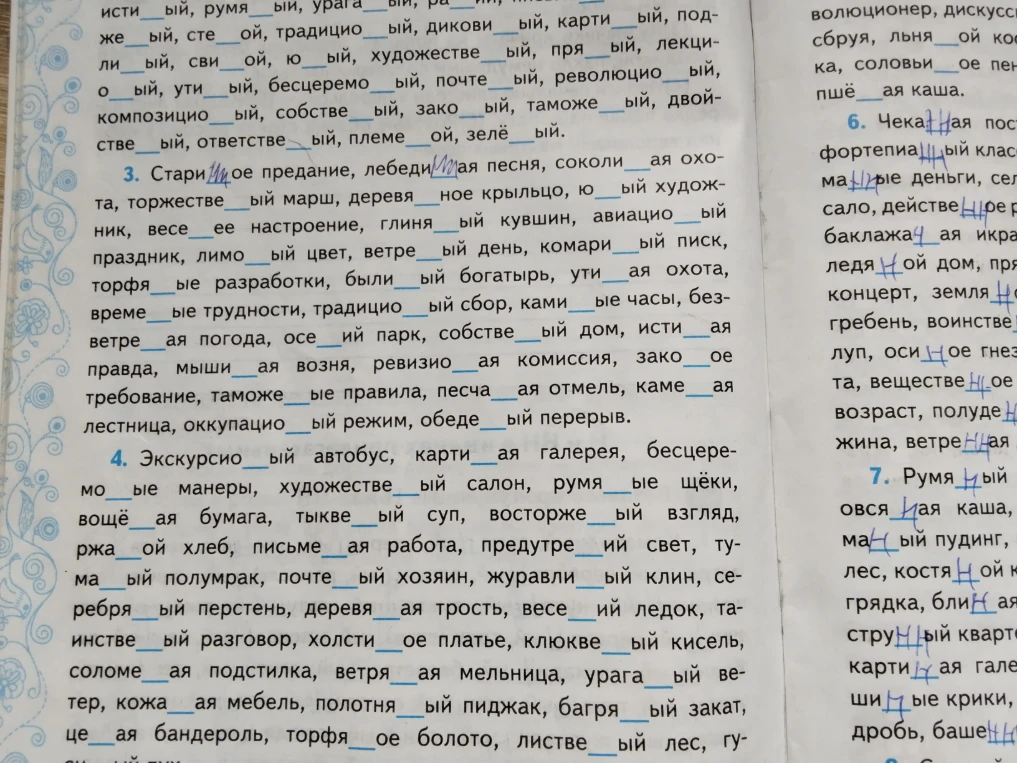 исти__ый, румя__ый, урага__ый,
же__ый, сте__ой, традицио__ый, дикови__ый, карти__ый, под-
ли__ый, сви__ой, ю__ый, художестве__ый, пря__ый, лекци-
о__ый, ути__ый, бесцеремо__ый, почте__ый, революцио__ый,
композицио__ый, собстве__ый, зако__ый, таможе__ый, двой-
стве__ый, ответстве__ый, племе__ой, зелё__ый.
3. Стари__ое предание, лебеди__ая песня, соколи__ая охо-
та, торжестве__ый марш, деревя__ное крыльцо, ю__ый худож-
ник, весе__ее настроение, глиня__ый кувшин, авиацио__ый
праздник, лимо__ый цвет, ветре__ый день, комари__ый писк,
торфя__ые разработки, были__ый богатырь, ути__ая охота,
време__ые трудности, традицио__ый сбор, ками__ые часы, без-
ветре__ая погода, осе__ий парк, собстве__ый дом, исти__ая
правда, мыши__ая возня, ревизио__ая комиссия, зако__ое
требование, таможе__ые правила, песча__ая отмель, каме__ая
лестница, оккупацио__ый режим, обеде__ый перерыв.
4. Экскурсио__ый автобус, карти__ая галерея, бесцере-
мо__ые манеры, художестве__ый салон, румя__ые щёки,
вощё__ая бумага, тыкве__ый суп, восторже__ый взгляд,
ржа__ой хлеб, письме__ая работа, предутре__ий свет, ту-
ма__ый полумрак, почте__ый хозяин, журавли__ый клин, се-
ребря__ый перстень, деревя__ая трость, весе__ий ледок, та-
инстве__ый разговор, холсти__ое платье, клюкве__ый кисель,
соломе__ая подстилка, ветря__ая мельница, урага__ый ве-
тер, кожа__ая мебель, полотня__ый пиджак, багря__ый закат,
це__ая бандероль, торфя__ое болото, листве__ый лес, гу-
волюционер,
сбруя, льня__ой
ка, соловьи__ое
пшё__ая каша.
6. ЧекаННая
фортепиаННый
маННые деньги,
сало, действеННое
баклажа__ая икра
ледяНой дом,
концерт, земля
гребень, воинстве
луп, осиНое
та, веществеННое
возраст, полуде
жина, ветреННая
7. РумяНый
овсяНая каша,
маННый пудинг,
лес, костяНой
грядка, блиН
струННый
картиНая
шиНые крики,
дробь, башеНН